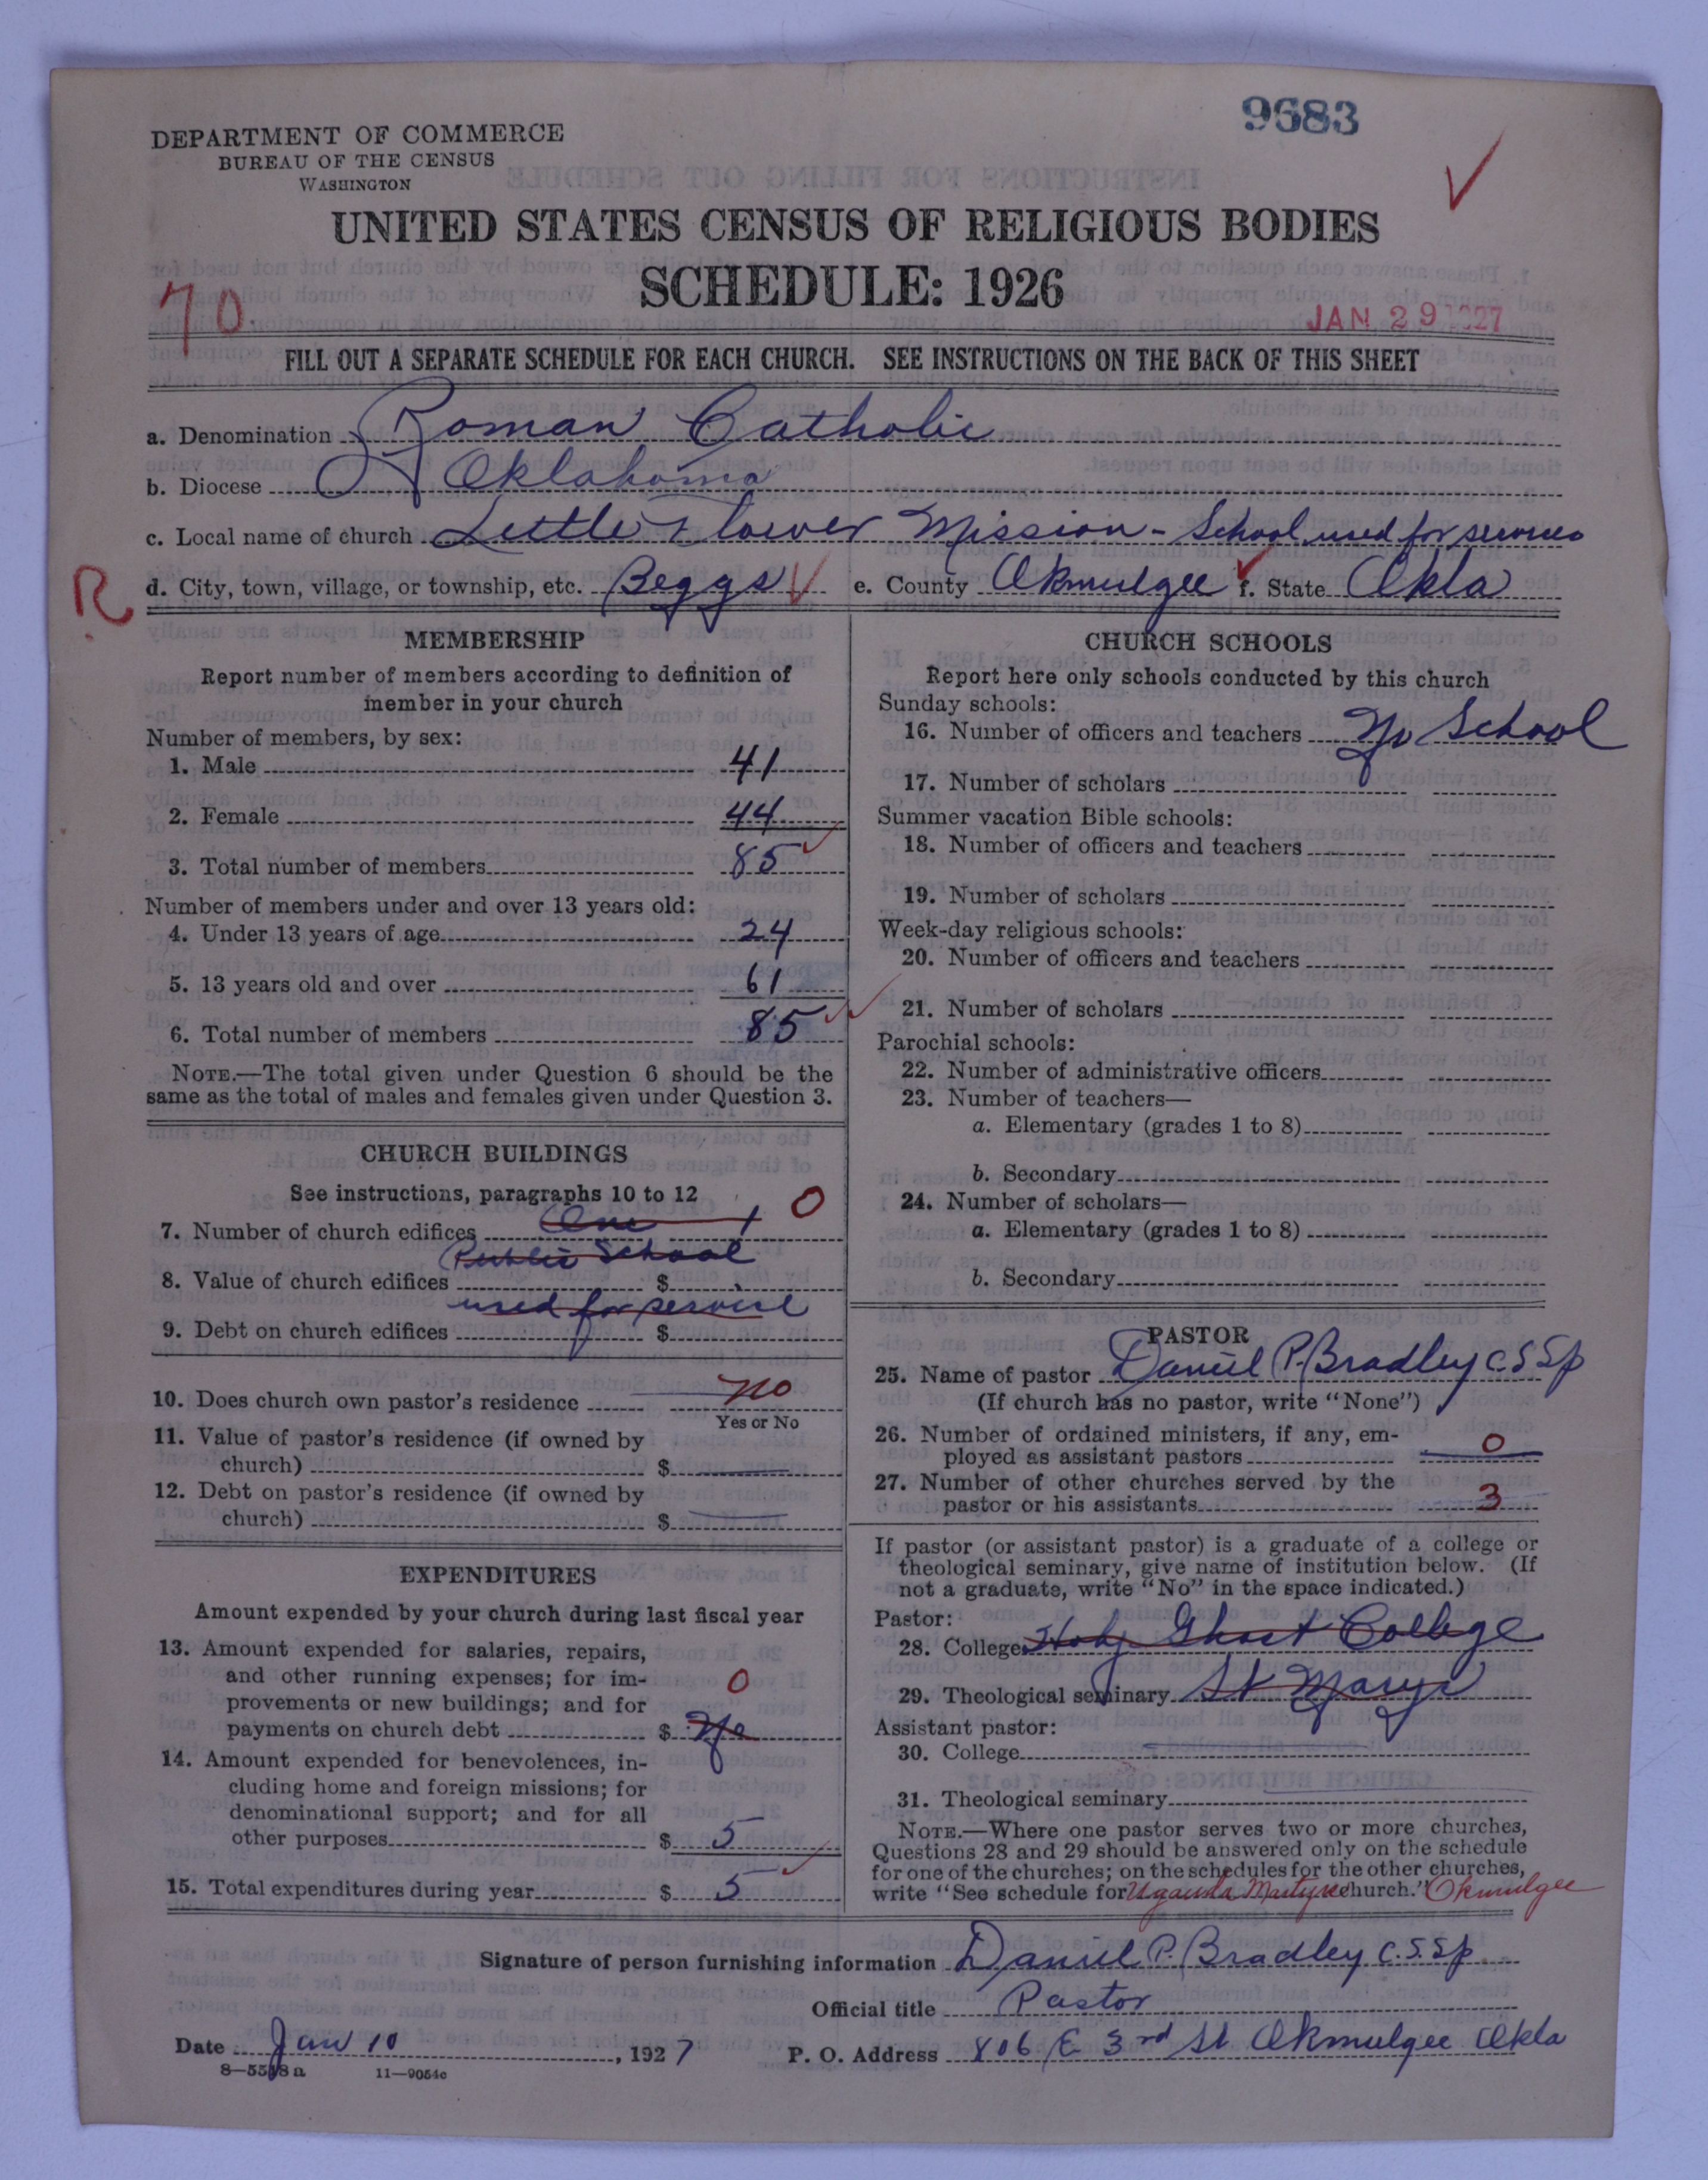 9683
DEPARTMENT OF COMMERCE
BUREAU OF THE CENSUS
WASHINGTON
UNITED STATES CENSUS OF RELIGIOUS BODIES
SCHEDULE: 1926
70
JAN 29 1927
FILL OUT A SEPARATE SCHEDULE FOR EACH CHURCH. SEE INSTRUCTIONS ON THE BACK OF THIS SHEET
a. Denomination Roman Catholic
b. Diocese Oklahoma
c. Local name of church Little Flower Mission - School used for services
R
d. City, town, village, or township, etc. Beggs e. County Okmulgee f. State Okla
MEMBERSHIP
Report number of members according to definition of
member in your church
Number of members, by sex:
1. Male 41
2. Female 44
3. Total number of members 85
Number of members under and over 13 years old:
4. Under 13 years of age 24
5. 13 years old and over 61
6. Total number of members 85
NOTE.—The total given under Question 6 should be the
same as the total of males and females given under Question 3.
CHURCH BUILDINGS
See instructions, paragraphs 10 to 12
7. Number of church edifices One 1 0
Public School
8. Value of church edifices $
used for service
9. Debt on church edifices $
10. Does church own pastor's residence no
Yes or No
11. Value of pastor's residence (if owned by
church) $
12. Debt on pastor's residence (if owned by
church) $
EXPENDITURES
Amount expended by your church during last fiscal year
13. Amount expended for salaries, repairs,
and other running expenses; for im-
provements or new buildings; and for
payments on church debt $ No 0
14. Amount expended for benevolences, in-
cluding home and foreign missions; for
denominational support; and for all
other purposes $ 5
15. Total expenditures during year $ 5
CHURCH SCHOOLS
Report here only schools conducted by this church
Sunday schools:
16. Number of officers and teachers No School
17. Number of scholars
Summer vacation Bible schools:
18. Number of officers and teachers
19. Number of scholars
Week-day religious schools:
20. Number of officers and teachers
21. Number of scholars
Parochial schools:
22. Number of administrative officers
23. Number of teachers—
a. Elementary (grades 1 to 8)
b. Secondary
24. Number of scholars—
a. Elementary (grades 1 to 8)
b. Secondary
PASTOR
25. Name of pastor Daniel P. Bradley C.S.Sp
(If church has no pastor, write "None")
26. Number of ordained ministers, if any, em-
ployed as assistant pastors 0
27. Number of other churches served by the
pastor or his assistants 3
If pastor (or assistant pastor) is a graduate of a college or
theological seminary, give name of institution below. (If
not a graduate, write "No" in the space indicated.)
Pastor:
28. College Holy Ghost College
29. Theological seminary St Marys
Assistant pastor:
30. College
31. Theological seminary
NOTE.—Where one pastor serves two or more churches,
Questions 28 and 29 should be answered only on the schedule
for one of the churches; on the schedules for the other churches,
write "See schedule for Uganda Martyrs church." Okmulgee
Signature of person furnishing information Daniel P. Bradley C.S.Sp
Official title Pastor
Date Jan 10, 1927 P. O. Address 806 E 3rd St Okmulgee Okla
8—5518a 11—9054c